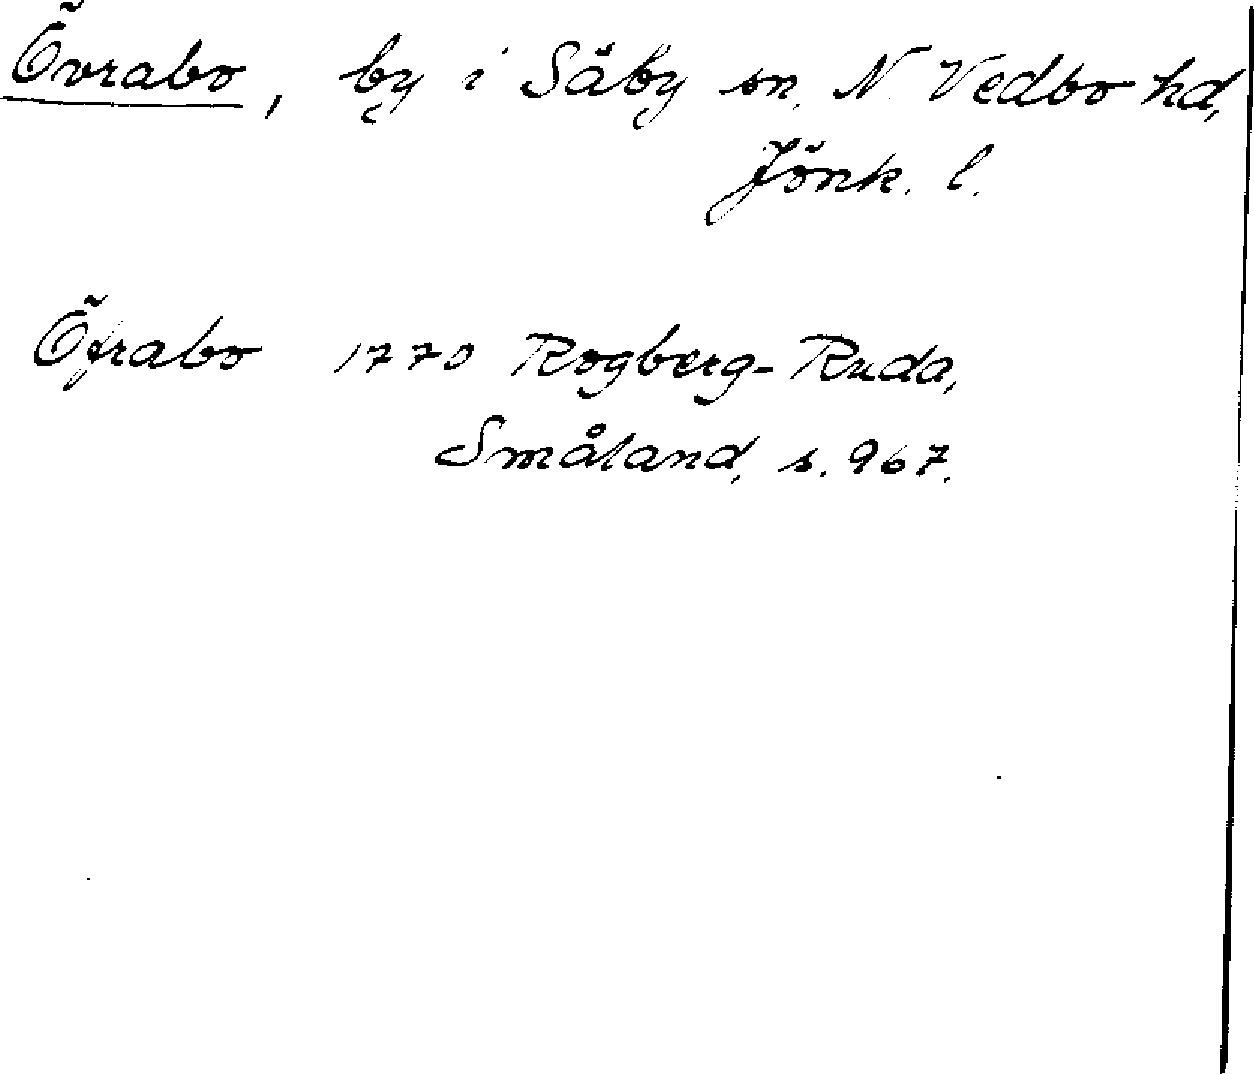 Övrabo, by i Säby sn, N. Vedbo hd,
Jönk. l.
Öfrabo 1770 Rogberg-Ruda,
Småland, s. 967.